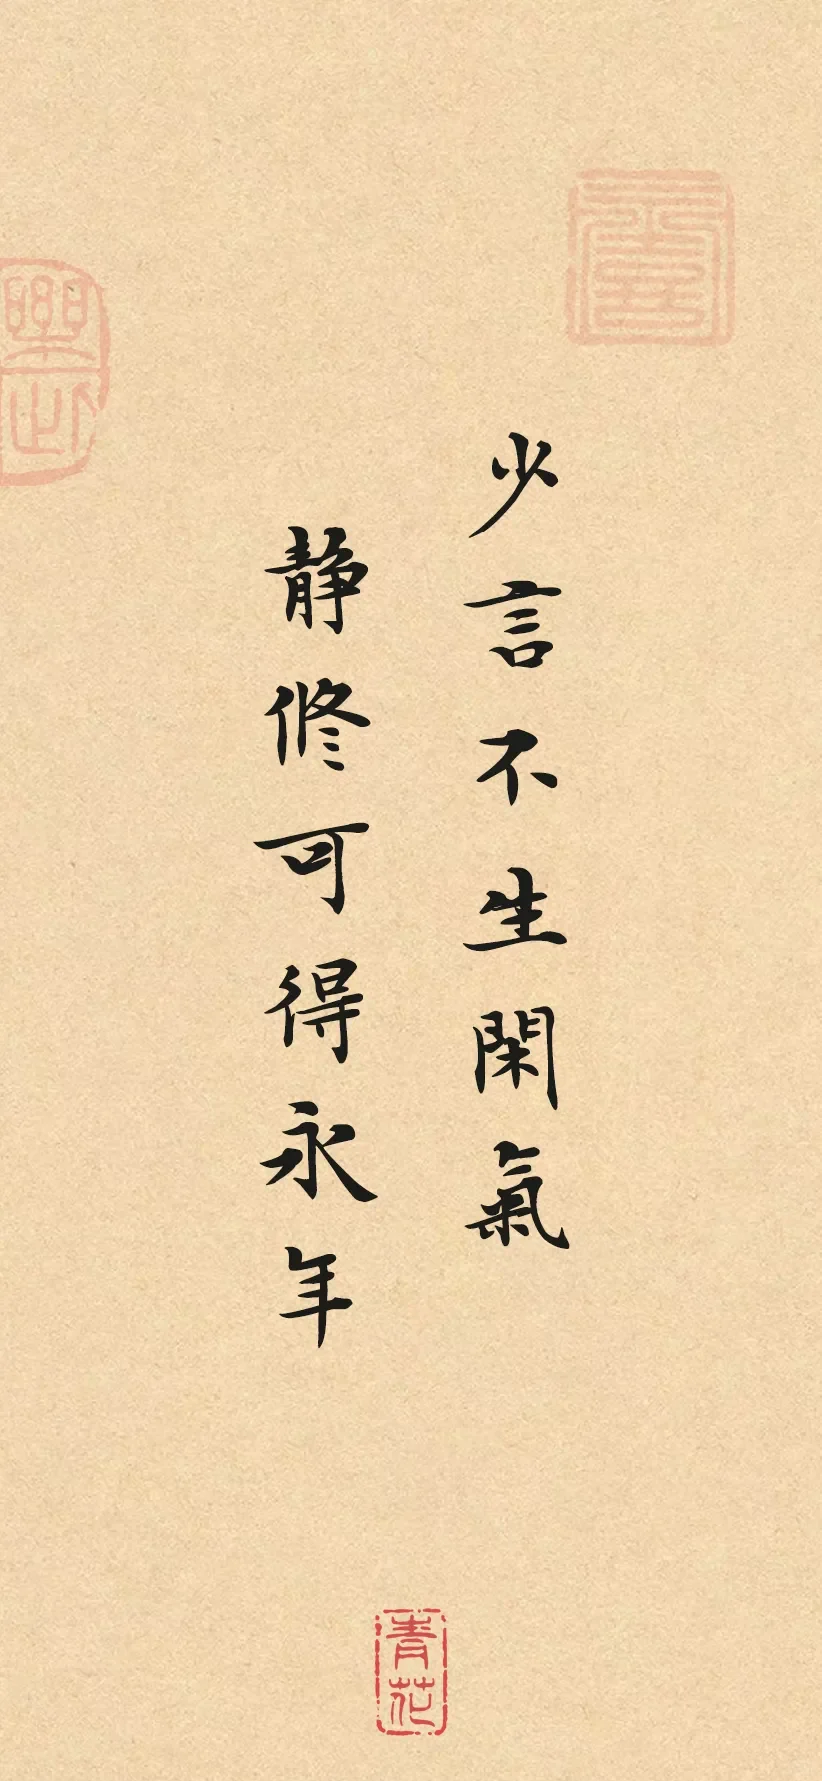 少言不生閑氣
静修可得永年
青花